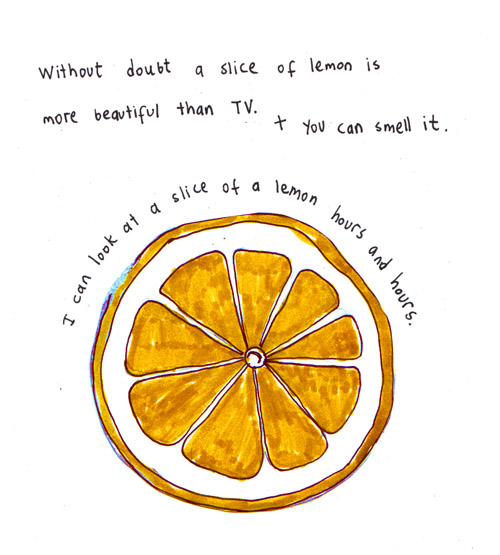 Without doubt a slice of lemon is
more beautiful than TV.
+ You can smell it.
I can look at a slice of a lemon hours and hours.